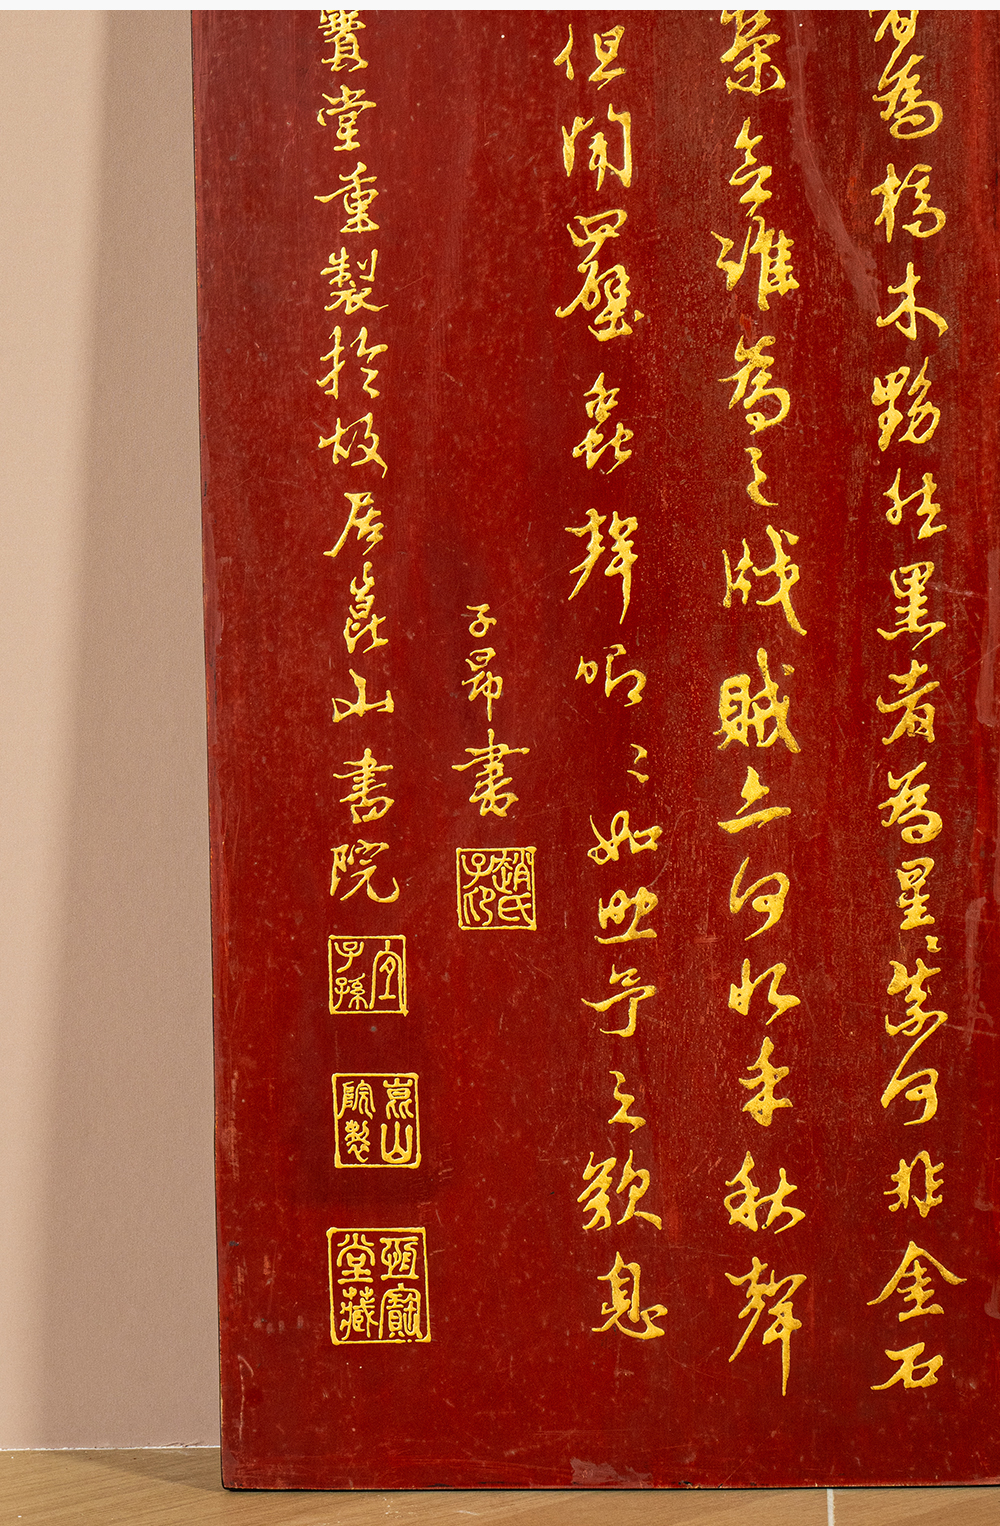 為槁木黟然黑者為星〻奈何非金石
榮念誰為之戕賊亦何恨乎秋聲
但聞四壁蟲聲唧〻如助予之歎息
子昂書
趙氏子昂
寶堂重製於故居崑山書院
宜子孫
崑山院製
寶堂藏